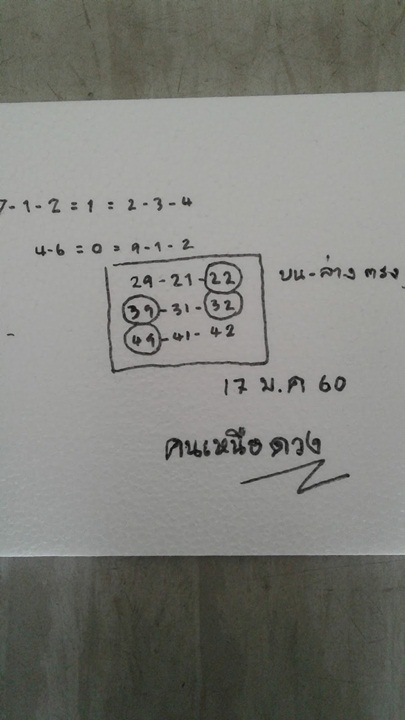 7-1-2 = 1 = 2-3-4
4-6 = 0 = 9-1-2
29-21-22 บน-ล่าง ตรง
39-31-32
49-41-42
17 ม.ค 60
คนเหนือดวง